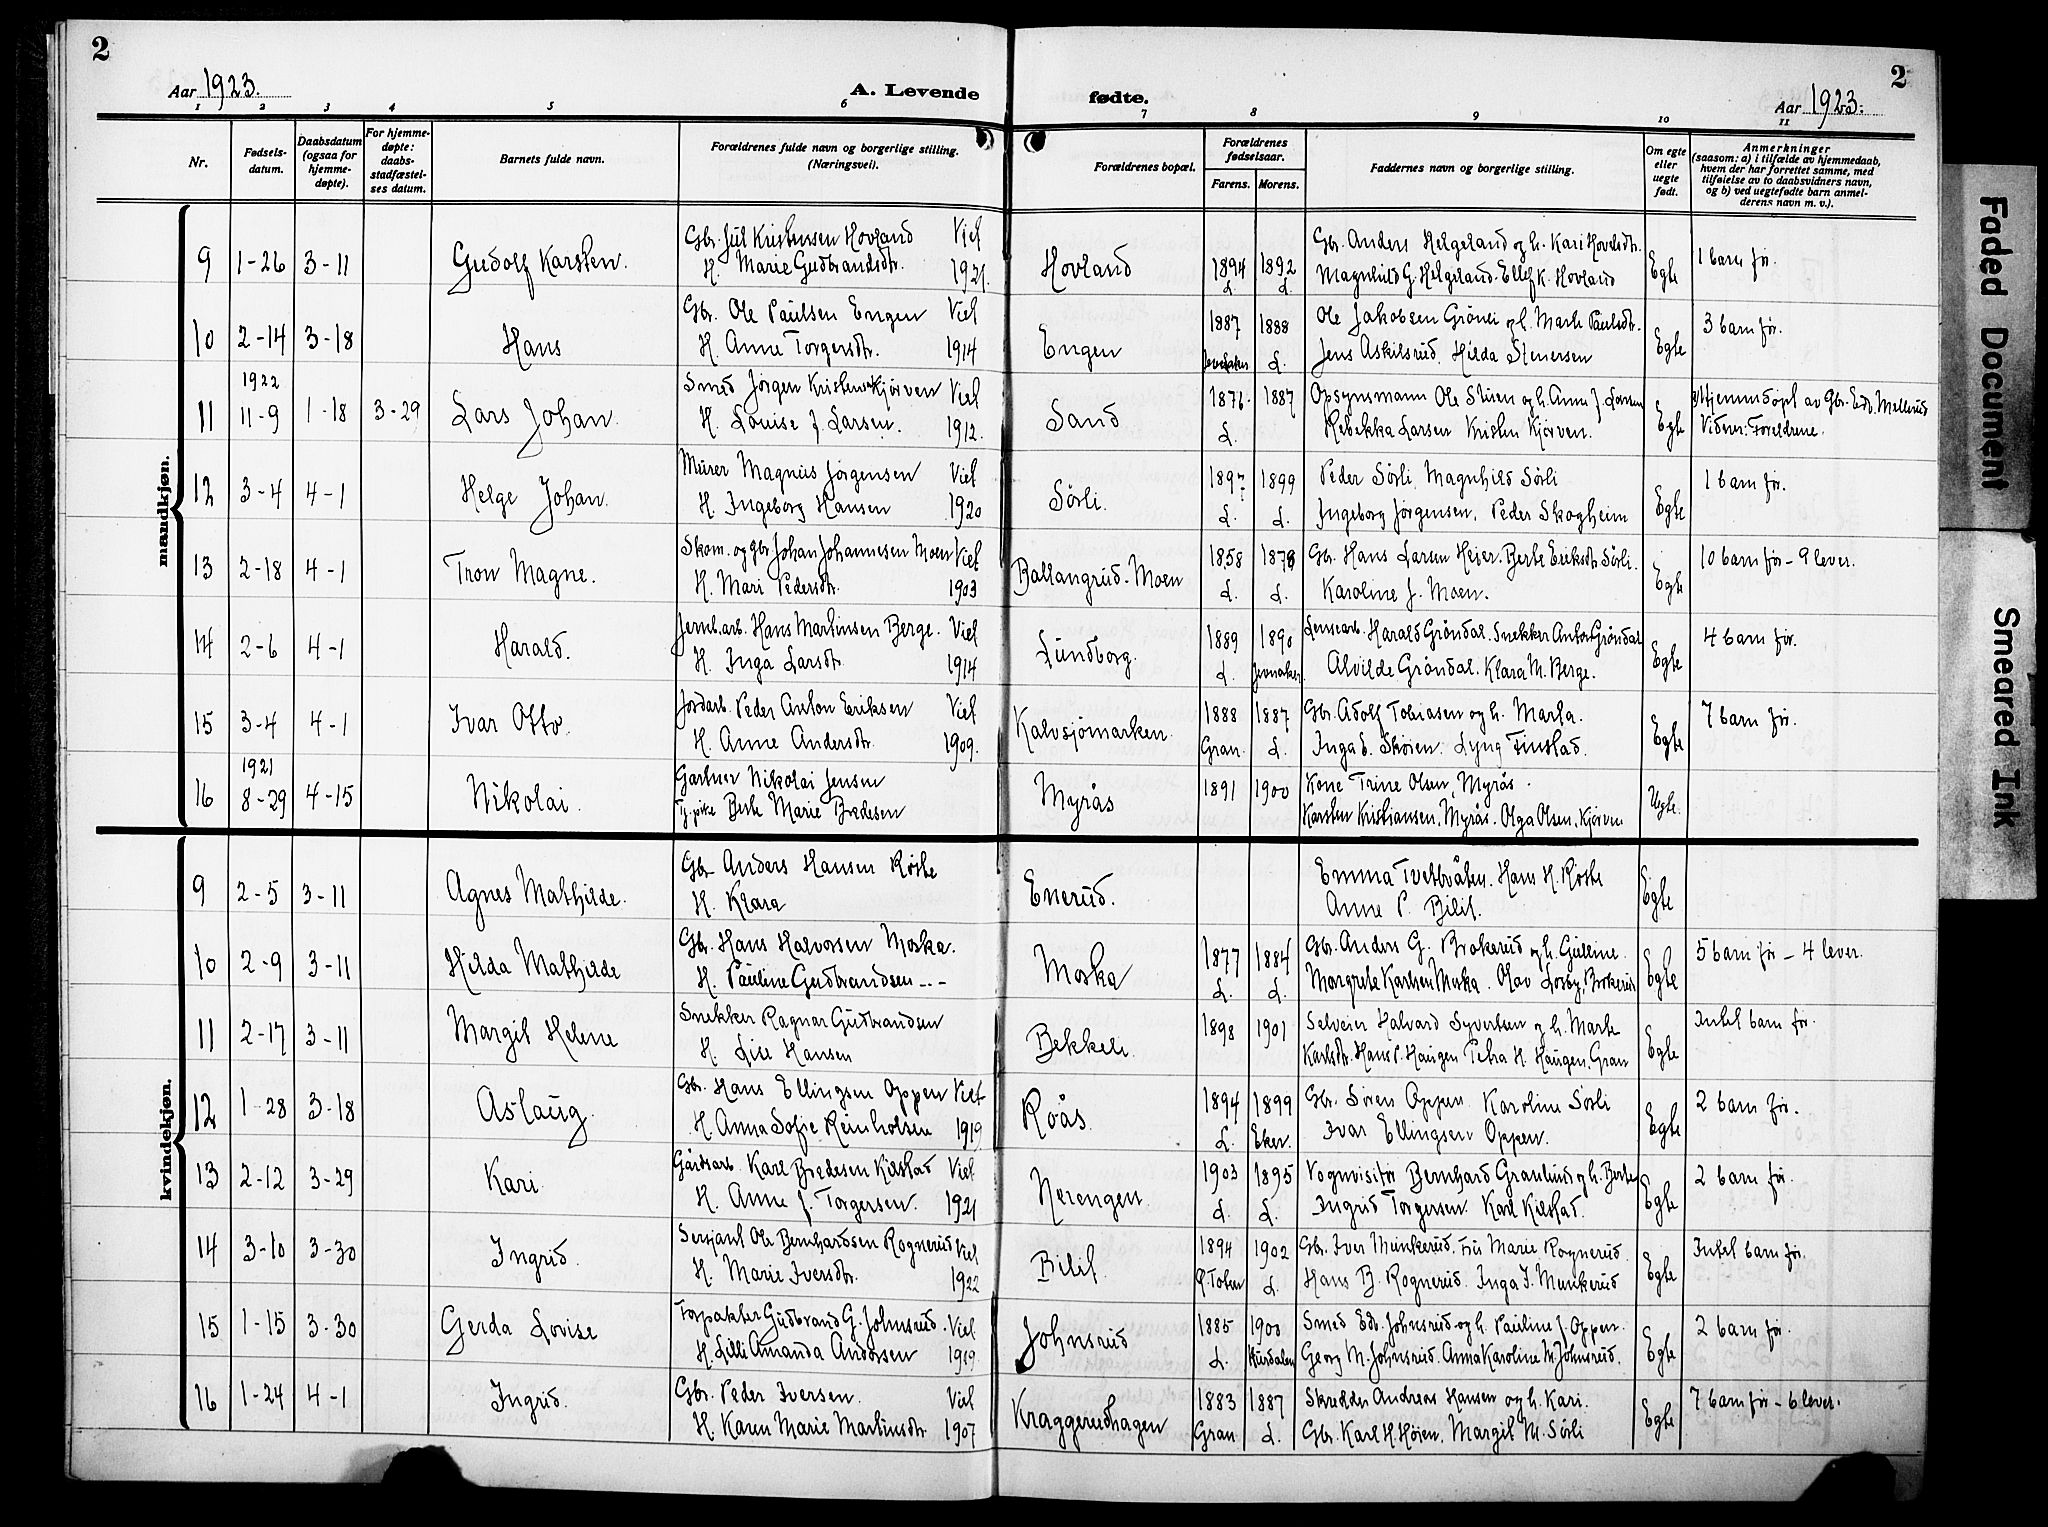 2
Aar 1923.
A. Levende
fødte.
Aar 1923.
2
1 2 3 4 5 6 7 8 9 10 11
Nr.
Fødsels-
datum.
Daabsdatum
(ogsaa for
hjemme-
døpte).
For hjemme-
døpte:
daabs-
stadfæstel-
ses datum.
Barnets fulde navn.
Forældrenes fulde navn og borgerlige stilling.
(Næringsvei).
Forældrenes bopæl.
Forældrenes
fødselsaar.
Farens. Morens.
Faddernes navn og borgerlige stilling.
Om egte
eller
uegte
født.
Anmerkninger
(saasom: a) i tilfælde av hjemmedaab,
hvem der har forrettet samme, med
tilføielse av to daabsvidners navn,
og b) ved uegtefødte barn anmel-
derens navn m. v.).
mandkjøn.
Gbr. Jul Kristensen Hovland Viet Gbr. Anders Helgeland og h. Kari Hovelsdtr.
9 1-26 3-11 Gudolf Karsten. H. Marie Gudbrandsdtr. 1921. Hovland 1894 1892 Magnhild G. Helgeland. Ellef K. Hovland Egte 1 barn før.
L. L.
Gbr. Ole Paulsen Engen Viet 1887 1888 Ole Jakobsen Grönli og h. Marte Paulsdtr. 3 barn før.
10 2-14 3-18 Hans H. Anne Torgersdtr. 1914 Engen Jevnaker L. Jens Askilsrud. Hilda Stenersen Egte
1922 Smed Jörgen Kristens. Kjörven Viet 1876. 1887 Opsynsmann Ole Stien og h. Anne J. Larsen Hjemmedöpt av Gbr. Edv. Mellerud
11 11-9 1-18 3-29 Lars Johan. H. Louise J. Larsen. 1912. Sand L. Rebekka Larsen Kristen Kjörven. Egte Vidner: Foreldrene.
Murer Magnus Jörgensen Viet 1897 1899 Peder Sörli, Magnhild Sörli 1 barn før.
12 3-4 4-1 Helge Johan. H. Ingeborg Hansen 1920 Sörli. L. L. Ingeborg Jörgensen. Peder Skogheim Egte
Skom. og gbr. Johan Johannesen Moen Viet 1858 1878 Gb. Hans Larsen Heier. Berte Eriksdtr. Sörli. 10 barn før - 9 lever.
13 2-18 4-1 Tron Magne. H. Mari Pedersdtr. 1903 Ballangrud-Moen L. L. Karoline J. Moen. Egte
Jernb.arb. Hans Martinsen Berge. Viet 1889 1890 Harald Gröndal. Snekker Anton Gröndal 4 barn før.
14 2-6 4-1 Harald. H. Inga Larsdtr. 1914 Lundborg. L. Jevnaker. Alvilde Gröndal. Klara M. Berge. Egte
Jordarb. Peder Anton Eriksen Viet 1888 1887 Gbr. Adolf Tobiasen og h. Marta. 7 barn før.
15 3-4 4-1 Ivar Otto. H. Anne Andersdtr. 1909. Kalvsjömarken. Gran. L. Inga L. Skoien. Lyng Finstad. Egte
1921 Gartner Nikolai Jensen 1891 1900 Kone Trine Olsen, Myrås.
16 8-29 4-15 Nikolai. Tj.pike Berte Marie Bredesen Myrås Karsten Kristiansen, Myrås. Olga Olsen, Kjörven Uegte.
kvindekjøn.
Gbr. Anders Hansen Röste Emma Tvetbråten. Hans H. Röste
9 2-5 3-11 Agnes Mathilde. H. Klara Enerud. Anne P. Bilit. Egte
Gbr. Hans Halvorsen Moska. 1877 1884 Gbr. Anders G. Brokerud og h. Gulline. 5 barn før - 4 lever.
10 2-9 3-11 Hilda Mathilde H. Pauline Gudbrandsen -- - Moska L. L. Margrete Karlsen Moska. Olav Losby, Brokerud Egte
Snekker Ragnar Gudbrandsen 1898 1901 Selveier Halvard Syvertsen og h. Marte Intet barn før.
11 2-17 3-11 Margit Helene H. Lise Hansen Bekkeli Karlsdtr. Hans P. Haugen Petra H. Haugen, Gran Egte
Gbr. Hans Ellingsen Oppen Viet 1894 1899 Gbr. Sören Oppen. Karoline Sörli 2 barn før.
12 1-28 3-18 Aslaug. H. Anna Sofie Reinholsen 1919 Roås. L. Eker. Ivar Ellingsen Oppen. Egte
Gårdsarb. Karl Bredesen Kilstad Viet 1903 1895 Vognvisitør Bernhard Granlund og h. Berte 2 barn før.
13 2-12 3-29 Kari. H. Anne J. Torgersen. 1921 Nerengen. L. L. Ingrid Torgersen. Karl Kilstad. Egte
Sersjant Ole Bernhardsen Rognerud Viet 1894 1902 Gbr. Iver Munkerud. Fru Marie Rognerud. Intet barn før.
14 3-10 3-30 Ingrid. H. Marie Iversdtr. 1922 Bilit. Ø. Toten L. Hans B. Rognerud. Inga I. Munkerud Egte
Forpakter Gudbrand G. Johnsrud. Viet 1885 1900 Smed Edv. Johnsrud og h. Pauline J. Oppen. 2 barn før.
15 1-15 3-30 Gerda Lovise H. Lilli Amanda Andersen 1919. Johnsrud L. Hurdalen Georg M. Johnsrud. Anna Karoline M. Johnsrud. Egte
Gbr. Peder Iversen. Viet 1883 1887 Skredder Andreas Hansen og h. Kari. 7 barn før - 6 lever.
16 1-24 4-1 Ingrid. H. Karen Marie Martinsdtr. 1907 Kraggerudhagen Gran L. Gbr. Karl H. Höien, Margit M. Sörli Egte
Faded Document
Smeared Ink